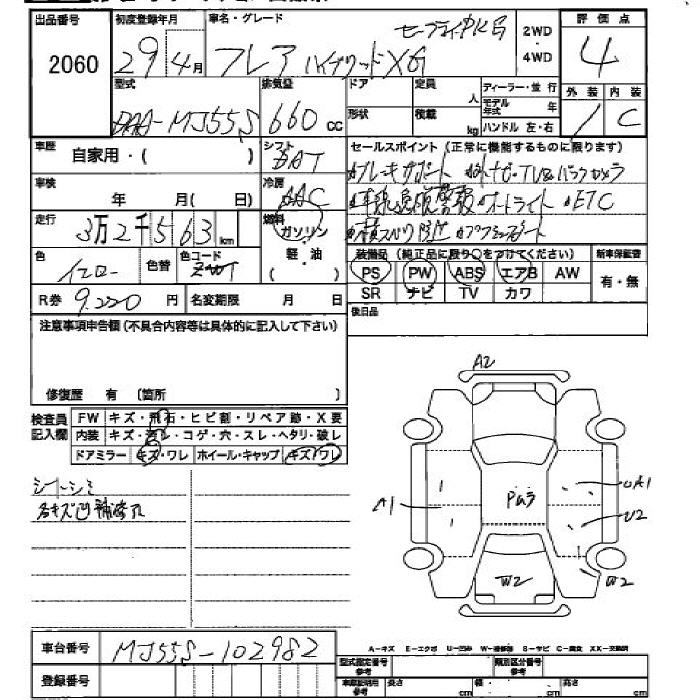 出品番号 初度登録年月 車名・グレード セーフティPKG 2WD・4WD 評価点
2060 29年4月 フレア ハイブリッドXG 4
型式 排気量 ドア 定員 人 ディーラー・並行 外装 内装
DAA-MJ55S 660cc 形状 積載 kg モデル年式 ハンドル 左・右 C
車歴 自家用・( ) シフト DAT セールスポイント(正常に機能するものに限ります)
車検 年 月( 日) 冷房 AAC
ブレーキサポート TV バックカメラ
走行 3万2千563km 燃料 ガソリン・軽・油 ( )
警報 オートライト ETC
色 イエロー 色替 色コード 装備品(純正品に限り○をつけてください) 新車保証書
PS PW ABS エアB AW 有・無
R券 9,220円 名変期限 月 日 SR ナビ TV カワ
注意事項申告欄(不具合内容等は具体的に記入して下さい) 後日品
修復歴 有 〔箇所 〕
検査員記入欄 FW キズ・飛石・ヒビ割・リペア跡・X要
内装 キズ・汚レ・コゲ・穴・スレ・ヘタリ・破レ
ドアミラー キズ・ワレ ホイール・キャップ キズ/ワレ
シートシミ
各キズ凹補修アト
A2
A1 Pカラ UA1
U2
W2 W2
車台番号 MJ55S-102982
A-キズ E-エクボ U-凹み W-補修跡 S-サビ C-腐食 XX-交換済
登録番号 型式指定番号 参考 類別区分番号
車庫証明用 参考 長さ cm 幅 cm 高さ cm